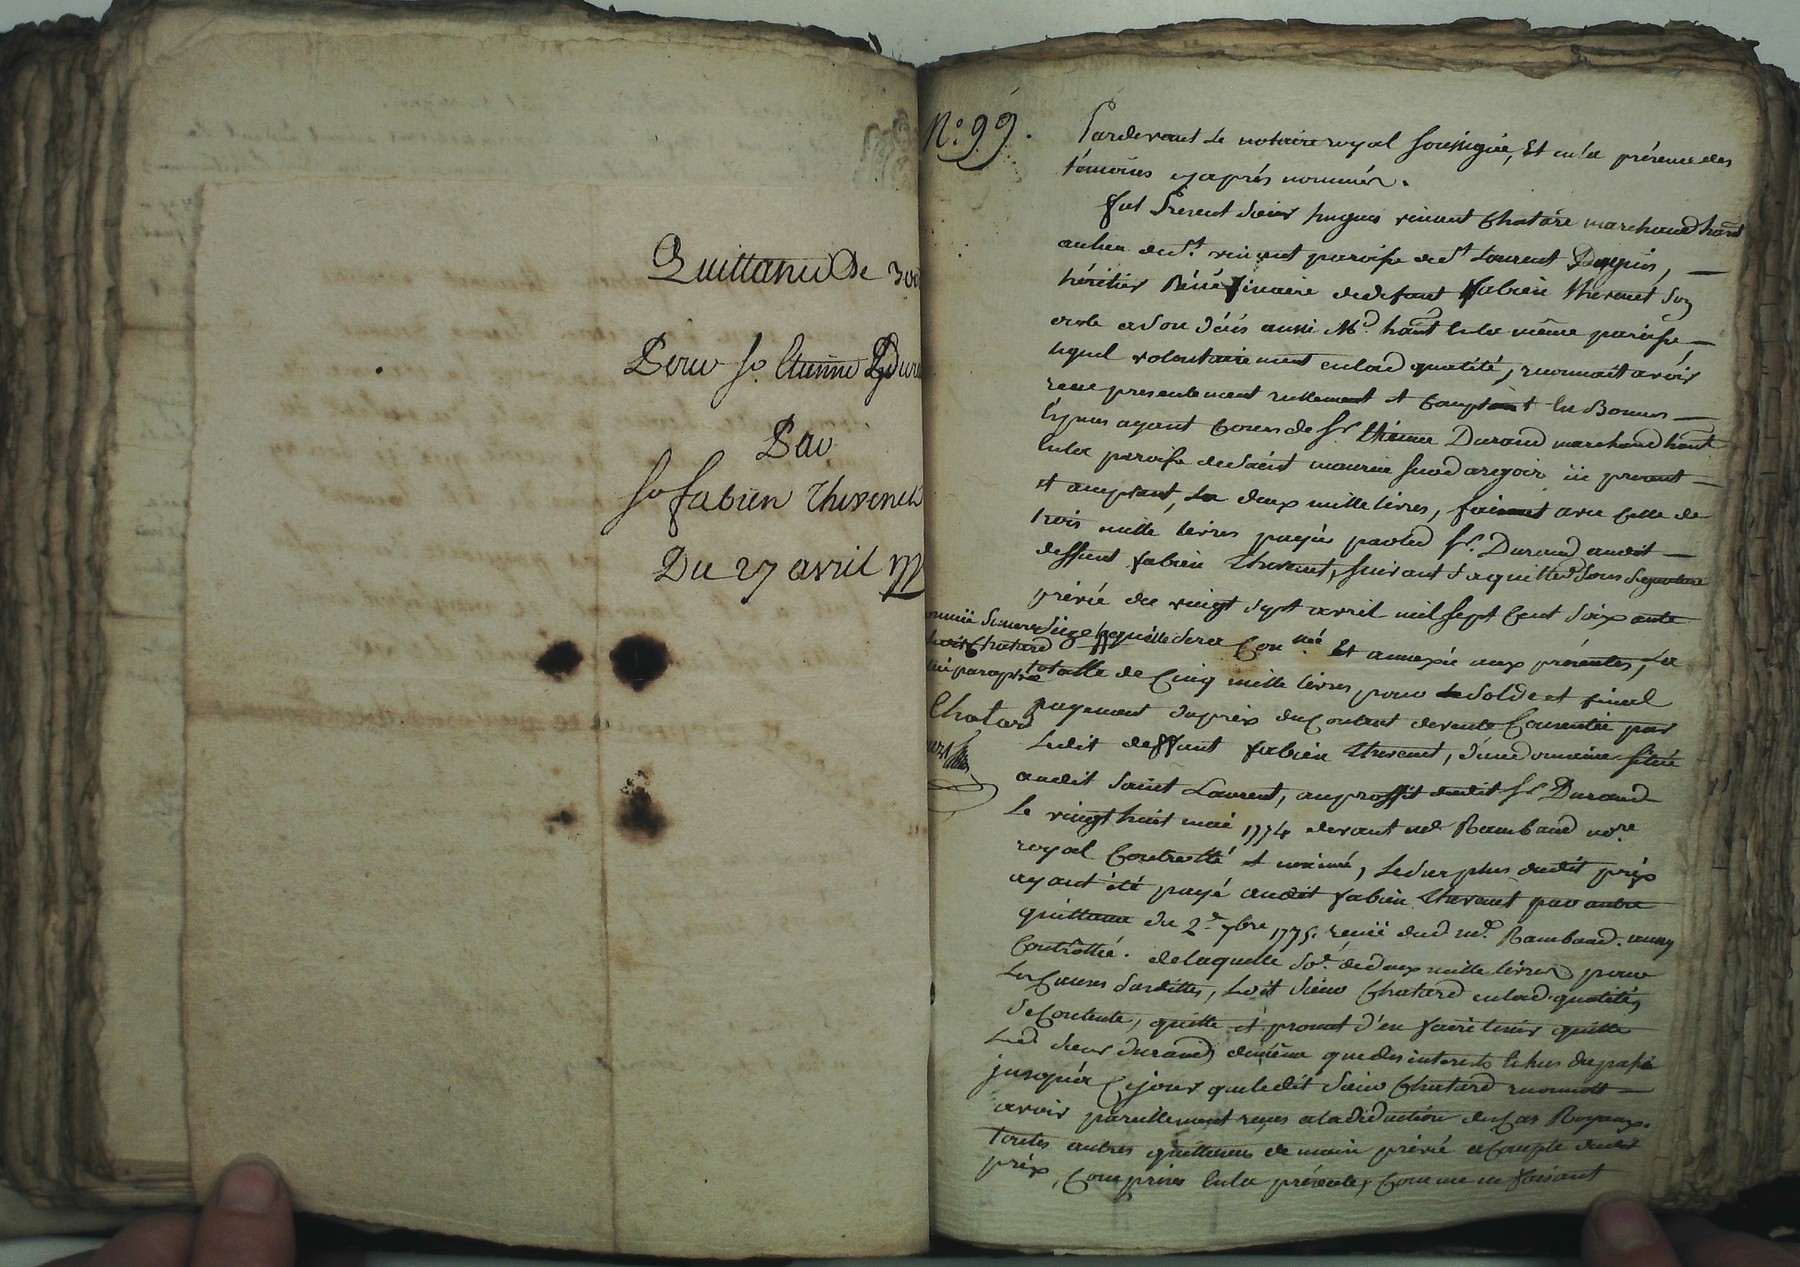 Quittance De 300
Pour Sr. Etienne Dura
Par
Sr fabien Thevenet
Du 27 avril 177
N.o 99.
Pardevant Le notaire royal soussigné, Et en la présence des
témoins cyaprés nommés.
fut Present sieur hugues vincent Chatard marchand hant
au lieu de St. vincent paroisse de St Laurent Dagpin, —
héritier Béné ficiaire dedeffunt fabien thevenet son
oncle a son décés aussi Md. hant en la même paroisse —
lequel volontairement en lad qualité, reconnait avoir
recu presentement reellement et Comptant en Bonnes —
Espèces ayant Cours de Sr. Etienne Durand marchand hant
en la paroisse de Saint maurice sur dargoir ici present —
et acceptant, La deux mille livres, faisant avec Celle de
trois mille livres payée par led Sr. Durand audit —
deffunt fabien thevenet, suivant sa quittce sous signature
privée du vingt sept avril mil sept Cent soixante
seize laquelle sera Con née Et annexée aux présentes, La
totalle de Cinq mille livres, pour le Solde et final
payement du prix du Contrat de vente Consentie par
Ledit deffunt fabien thevenet, d'un domaine situé
audit Saint Laurent, au proffit dudit Sr. Durand
Le vingt huit mai 1774 devant me Rambaud nore
royal Controllé et insinué, Le surplus dudit prix
ayant été payé audit fabien thevenet par autre
quittance du 2e 7bre 1775. recüe dud me. Rambaud. aussy
Controllée. de laquelle So.e de deux mille livres pour
Les Causes susdittes, Ledit sieur Chatard en lad. qualité,
se Contente, quitte et promet d'en faire tenir quitte
Led sieur durand, de même que des interets Echus du passé
jusqu'a Cejour que ledit sieur Chatard reconnoit —
avoir pareillement reçus a la déduction des Cas Royaux.
Toutes autres quittances de main privée a Compte dudit
prix, Comprises en la présente, Comme ne faisant
ledit Chatard
été paraphée
Chatard